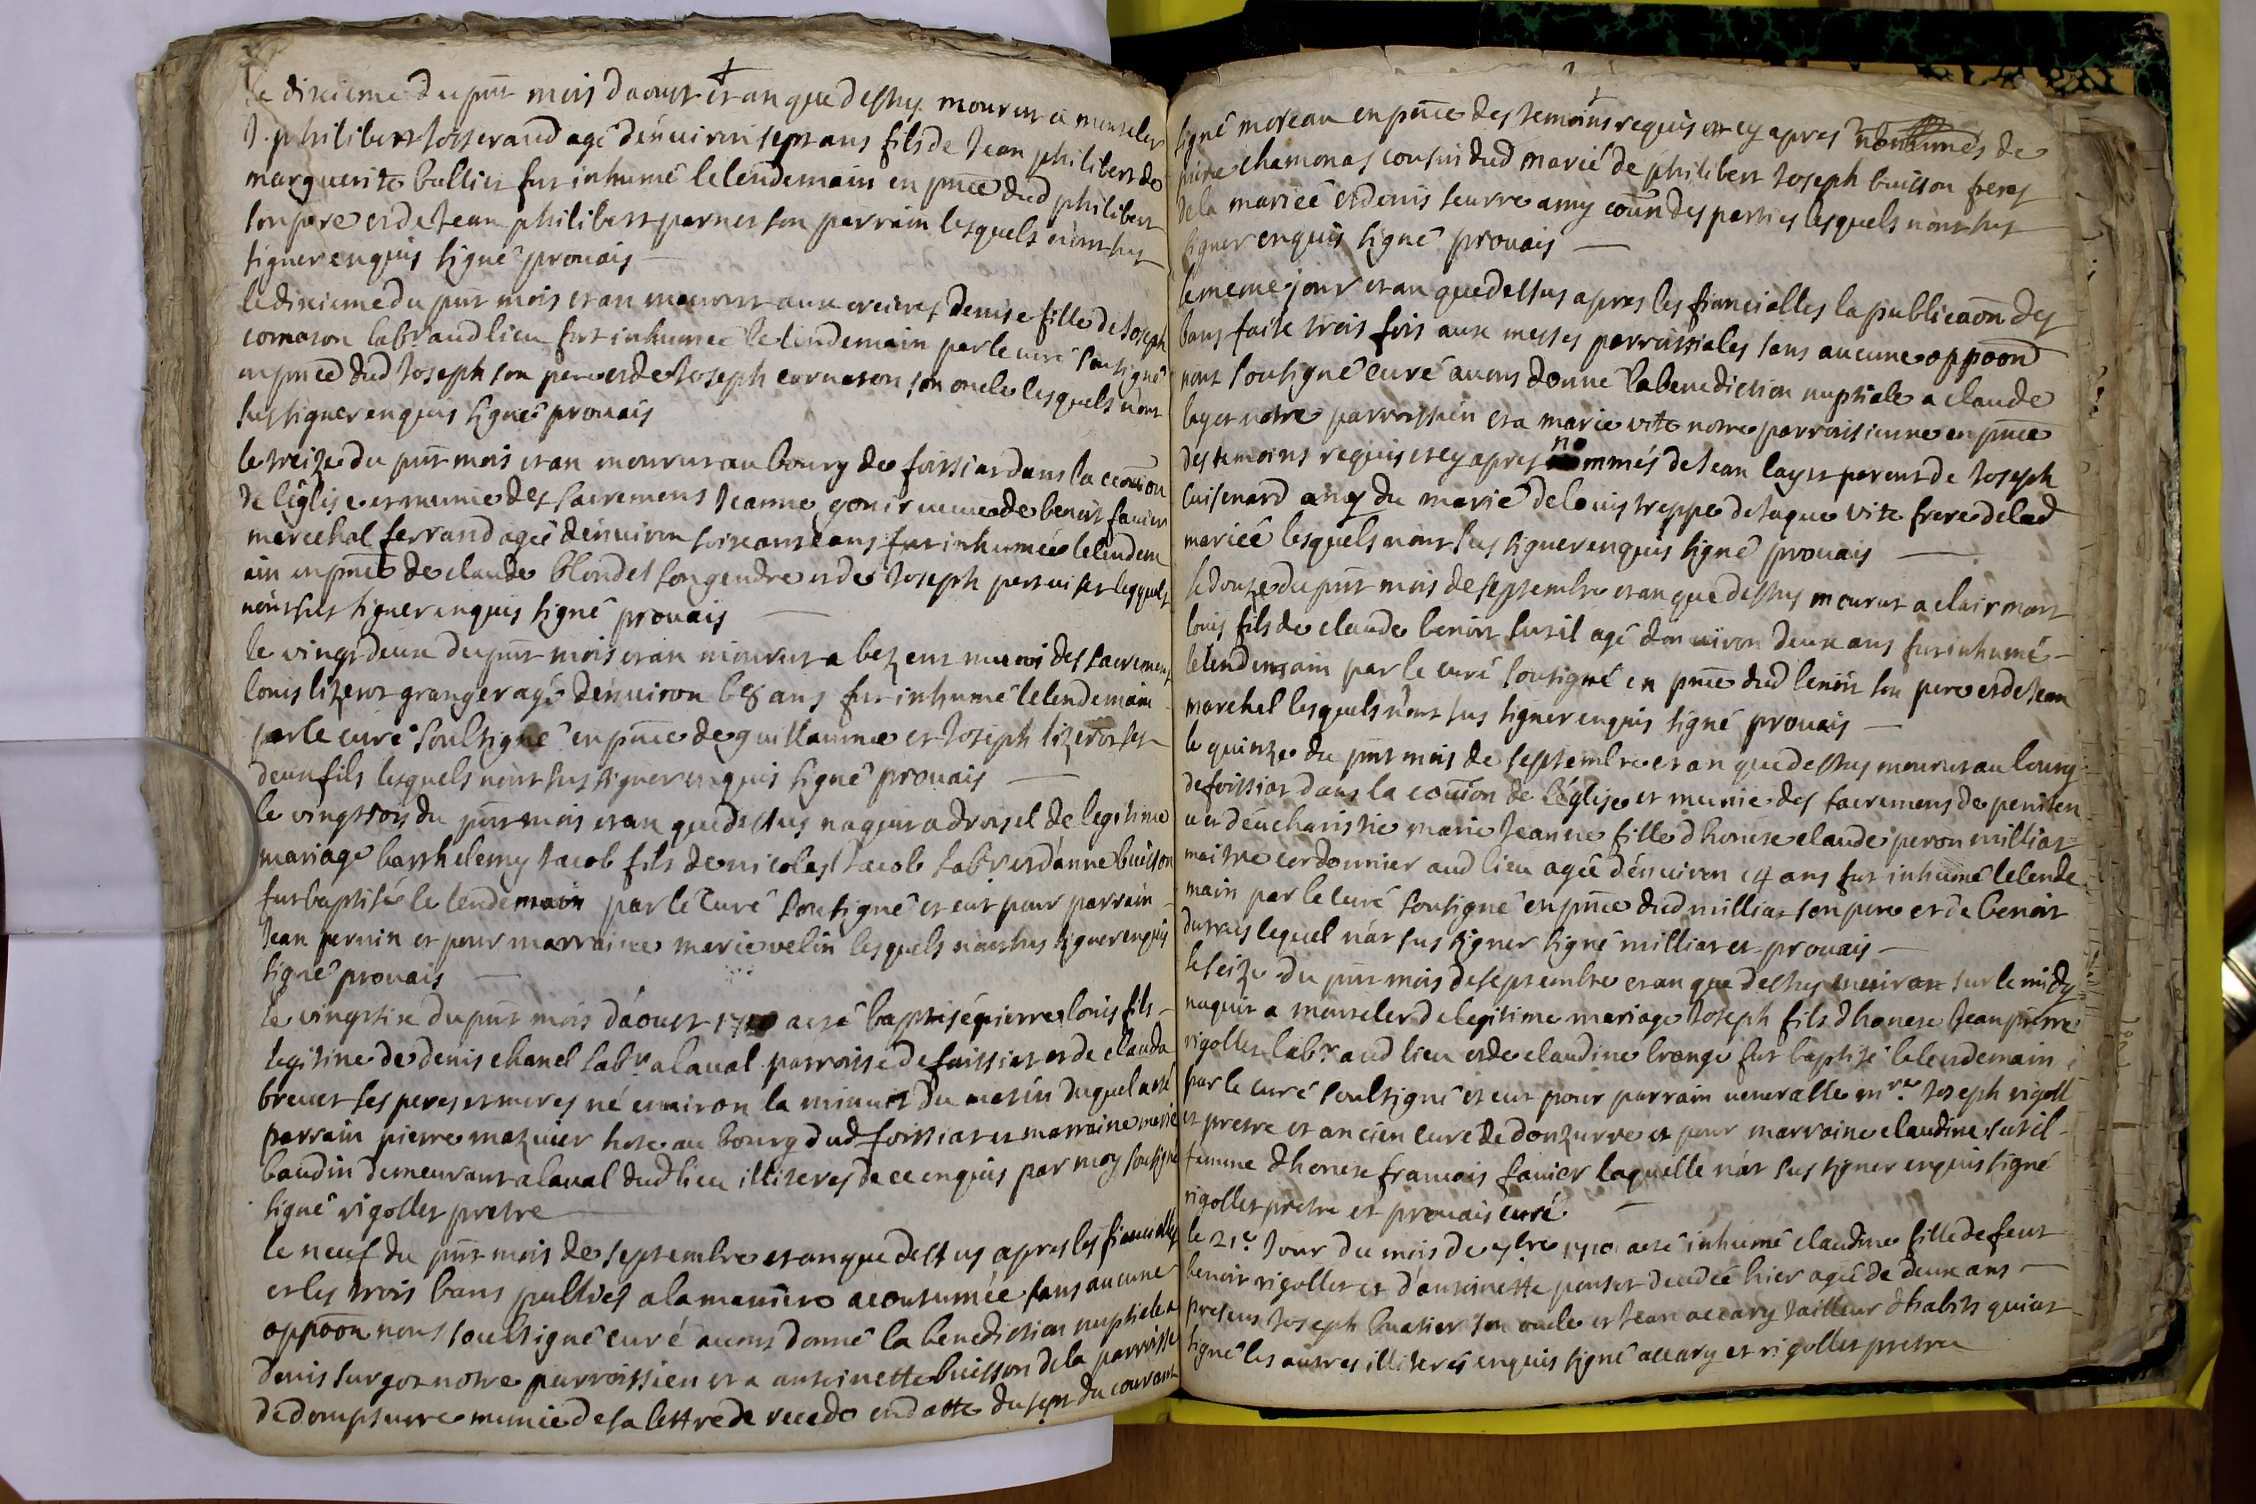 le dixieme du pnt mois daoust et an que dessus mourut a monseler
J. philibert Josserand agé denviron sept ans fils de Jean philibert de
marguerite bullier fut inhumé le lendemain en pnce dud philibert
son pere et de Jean philibert pernet son parrain lesquels nont sus
signer enquis signé prouais
le dixieme du pnt mois et an mourut aux denise fille de Joseph
cornaton labr aud lieu fut inhumee le lendemain par le curé soussigné
en pnce dud Joseph son pere et de Joseph cornaton son oncle lesquels nont
sus signer enquis signé prouais
le treize du pnt mois et an mourut au bourg de foissiat dans la coMion
de l'église et munie des sacremens Jeanne gonir veuve de benoit favier
marechal ferrand agée denviron soixante ans fut inhumée le lendem
ain en pnce de claude blondel son gendre et de Joseph lesquels
nont sus signer enquis signé prouais
le vingt deux du pnt mois et an mourut a bezent muni des sacremens
louis lizerot granger agé denviron 68 ans fut inhumé le lendemain
par le curé soussigné en pnce de guillaume et Joseph lizerot ses
deux fils lesquels nont sus signer enquis signé prouais
le vingt trois du pnt mois et an que dessus naquit a de legitime
mariage barthelemy Jacob fils de nicolas Jacob labr et d'anne buisson
fut baptisé le lendemain par le curé soussigné et eut pour parrain
Jean pernin et pour marraine marie velin lesquels nont sus signer enquis
signé prouais
le vingt six du pnt mois d'aoust 1710 a eté baptisé pierre louis fils
legitime de denis chanel labr a laval parroisse de foissiat et de clauda
brevet ses peres et meres né environ la minuit du matin duquel a eté
parrain pierre mazuier hote au bourg dud foissiat et marraine marie
baudin demeurant a laval dud lieu illiteres de ce enquis par moy soussigné
signé rigollet pretre
le neuf du pnt mois de septembre et an que dessus apres les fiancialles
et les trois bans publiés a la maniere acoutumée sans aucune
oppoon nous soubsigné curé avons donné la benediction nuptiale a
denis surgot notre parroissien et a antoinette buisson de la parroisse
de dompsurre munie de sa lettre de recedo en datte du sept du courant
signé moreau en pnce des temoins requis et cy apres nommés de
pierre chamonas cousin dud marié de philibert Joseph buisson freres
de la mariée et denis seurre amy coMun des parties lesquels nont sus
signer enquis signé prouais
le meme jour et an que dessus apres les fiancialles la publicaon des
bans faite trois fois aux messes parroissiales sans aucune oppoon
nous soussigné curé avons donné la benediction nuptiale a claude
layet notre parroissien et a marie vite notre parroissienne en pnce
des temoins requis et cy apres nommés de Jean layet parent de Joseph
cuisenard amy du marié de louis treppe de Jaque vite frere de lad
mariée lesquels nont sus signer enquis signé prouais
le douze du pnt mois de septembre et an que dessus mourut a clairmont
louis fils de claude benoit sutil agé d'environ deux ans fut inhumé
le lendemain par le curé soussigné en pnce dud benoit son pere et de Jean
marchal lesquels n'ont sus signer enquis signé prouais
le quinze du pnt mois de septembre et an que dessus mourut au bourg
de foissiat dans la coMion de l'église et munie des sacremens de peniten
ce et d'eucharistie marie Jeanne fille d honete claude peron milliat
maitre cordonnier aud lieu agée d'environ 14 ans fut inhumé le lende
main par le curé soussigné en pnce dud milliat son pere et de benoit
lequel n'at sus signer signé milliat et prouais
le seize du pnt mois de septembre et an que dessus environ sur le midy
naquit a monseler de legitime mariage Joseph fils d honete Jean pierre
rigollet labr aud lieu et de claudine brange fut baptisé le lendemain
par le curé soussigné et eut pour parrain venerable mre Joseph rigoll
et pretre et ancien curé de donzurre et pour marraine claudine sutil
femme d honete francois favier laquelle n'at sus signer enquis signé
rigollet pretre et prouais curé
le 21e Jour du mois de 7bre 1710 a eté inhumé claudine fille de feut
benoit rigollet et d'antoinette ponset decedée hier agée de deux ans
presens Joseph buatier son oncle et Jean accary tailleur d habits qui at
signé les autres illiterés enquis signé accary et rigollet pretre